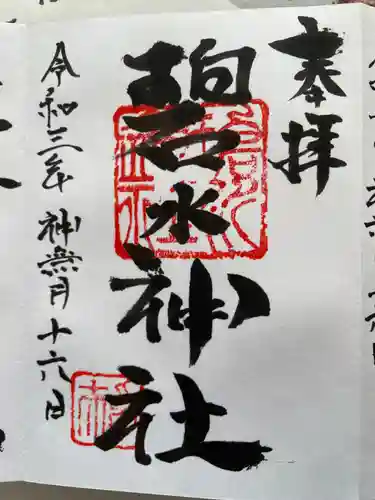 奉拝
碧水神社
令和三年神無月十六日